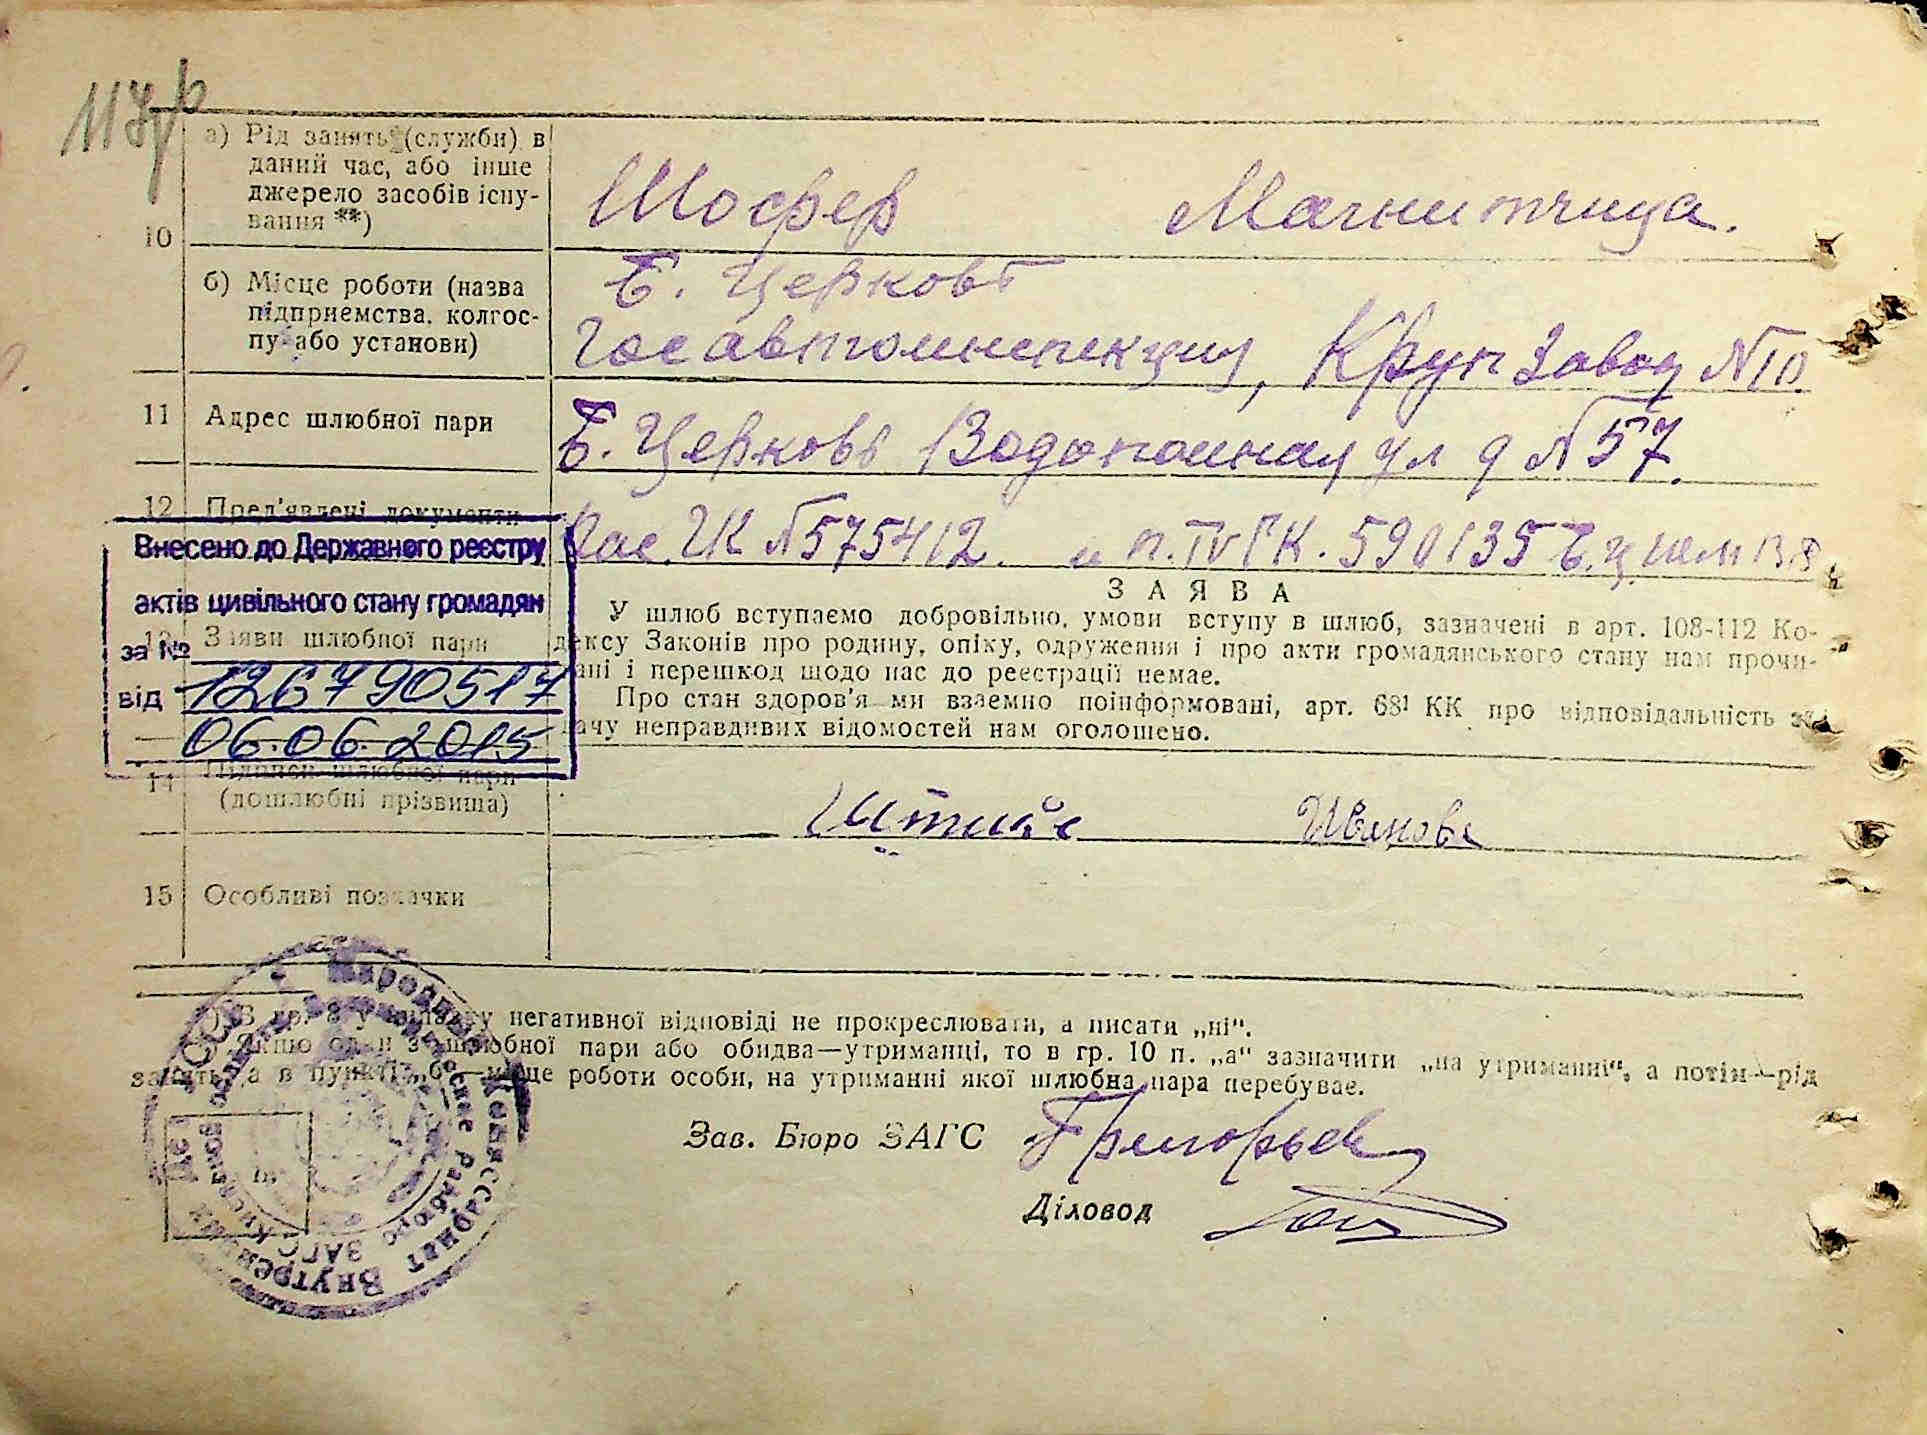 117
а) Рід занять (служби) в
даний час, або інше
джерело засобів існу-
вання **)
Шофер
Магнитчица.
10
б) Місце роботи (назва
підприємства, колгос-
пу або установи)
Б. Церковь
Госавтоинспекция, Круп завод №10
11 Адрес шлюбної пари
Б. Церковь Водопойная ул д №57.
12 Пред'явлені документи
№575412. и п. IV ГК. 590135
Внесено до Державного реєстру
актів цивільного стану громадян
за №
від 126790517
06.06.2015
13 Заяви шлюбної пари
ЗАЯВА
У шлюб вступаємо добровільно, умови вступу в шлюб, зазначені в арт. 108-112 Ко-
дексу Законів про родину, опіку, одруження і про акти громадянського стану нам прочи-
ані і перешкод щодо нас до реєстрації немає.
Про стан здоров'я ми взаємно поінформовані, арт. 68¹ КК про відповідальність за
дачу неправдивих відомостей нам оголошено.
14 Підписи шлюбної пари
(дошлюбні прізвища)
Иванова
15 Особливі позначки
*) В гр. 8 у випадку негативної відповіді не прокреслювати, а писати „ні“.
Якщо один з шлюбної пари або обидва—утриманці, то в гр. 10 п. „а“ зазначити „на утриманні“, а потім—рід
занять, а в пункті „б“—місце роботи особи, на утриманні якої шлюбна пара перебуває.
Зав. Бюро ЗАГС Григорьев
Діловод
Народный Комиссариат Внутренних Дел
СССР
ЗАГС